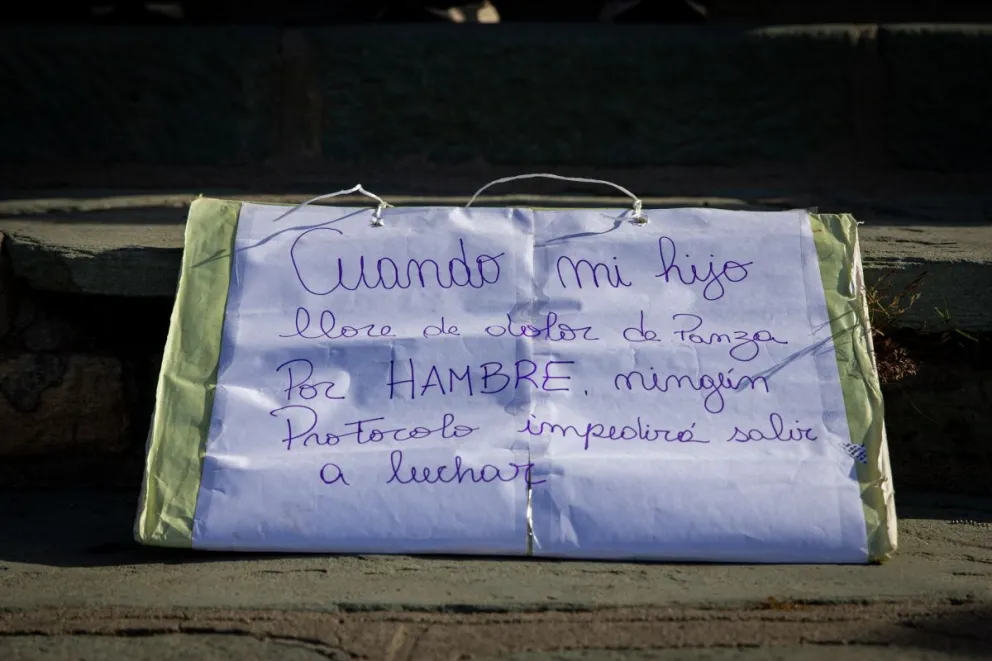 Cuando mi hijo
llore de dolor de Panza
Por HAMBRE, ningún
Protocolo impedirá salir
a luchar